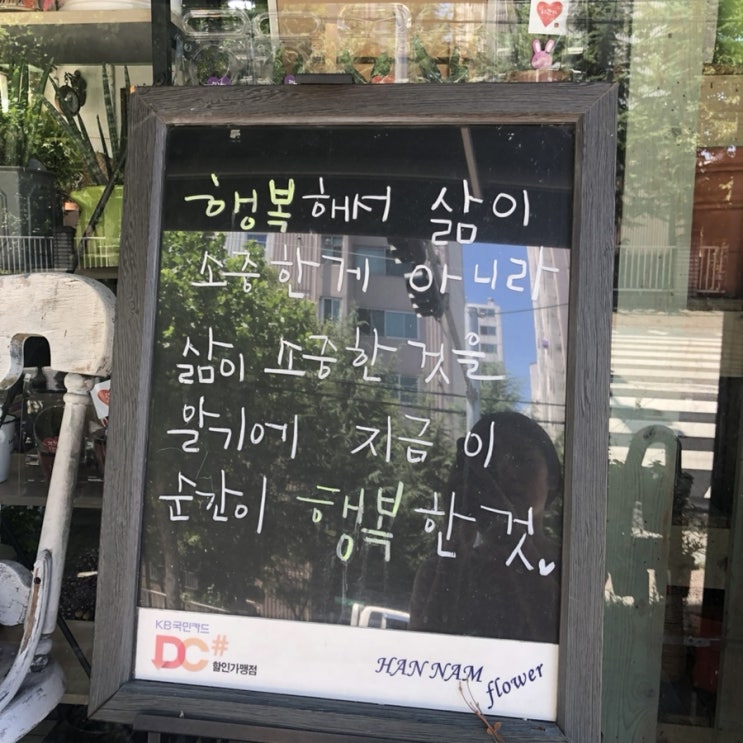 행복해서 삶이
소중한게 아니라
삶이 소중한 것을
알기에 지금 이
순간이 행복한 것
KB국민카드
DC#
할인가맹점
HAN NAM
flower